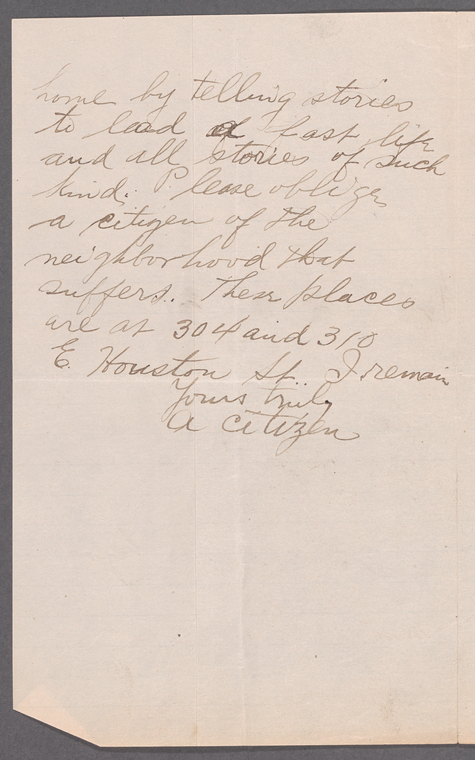 home by telling stories
to lead a fast life
and all stories of such
kind. Please oblige
a citizen of the
neighborhood that
suffers. These places
are at 304 and 310
E. Houston St. I remain
Yours truly
A citizen